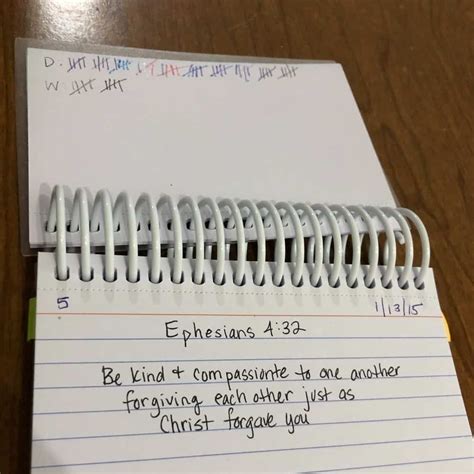 D:
W:
5
1/13/15
Ephesians 4:32
Be kind + compassionte to one another
forgiving each other just as
Christ forgave you